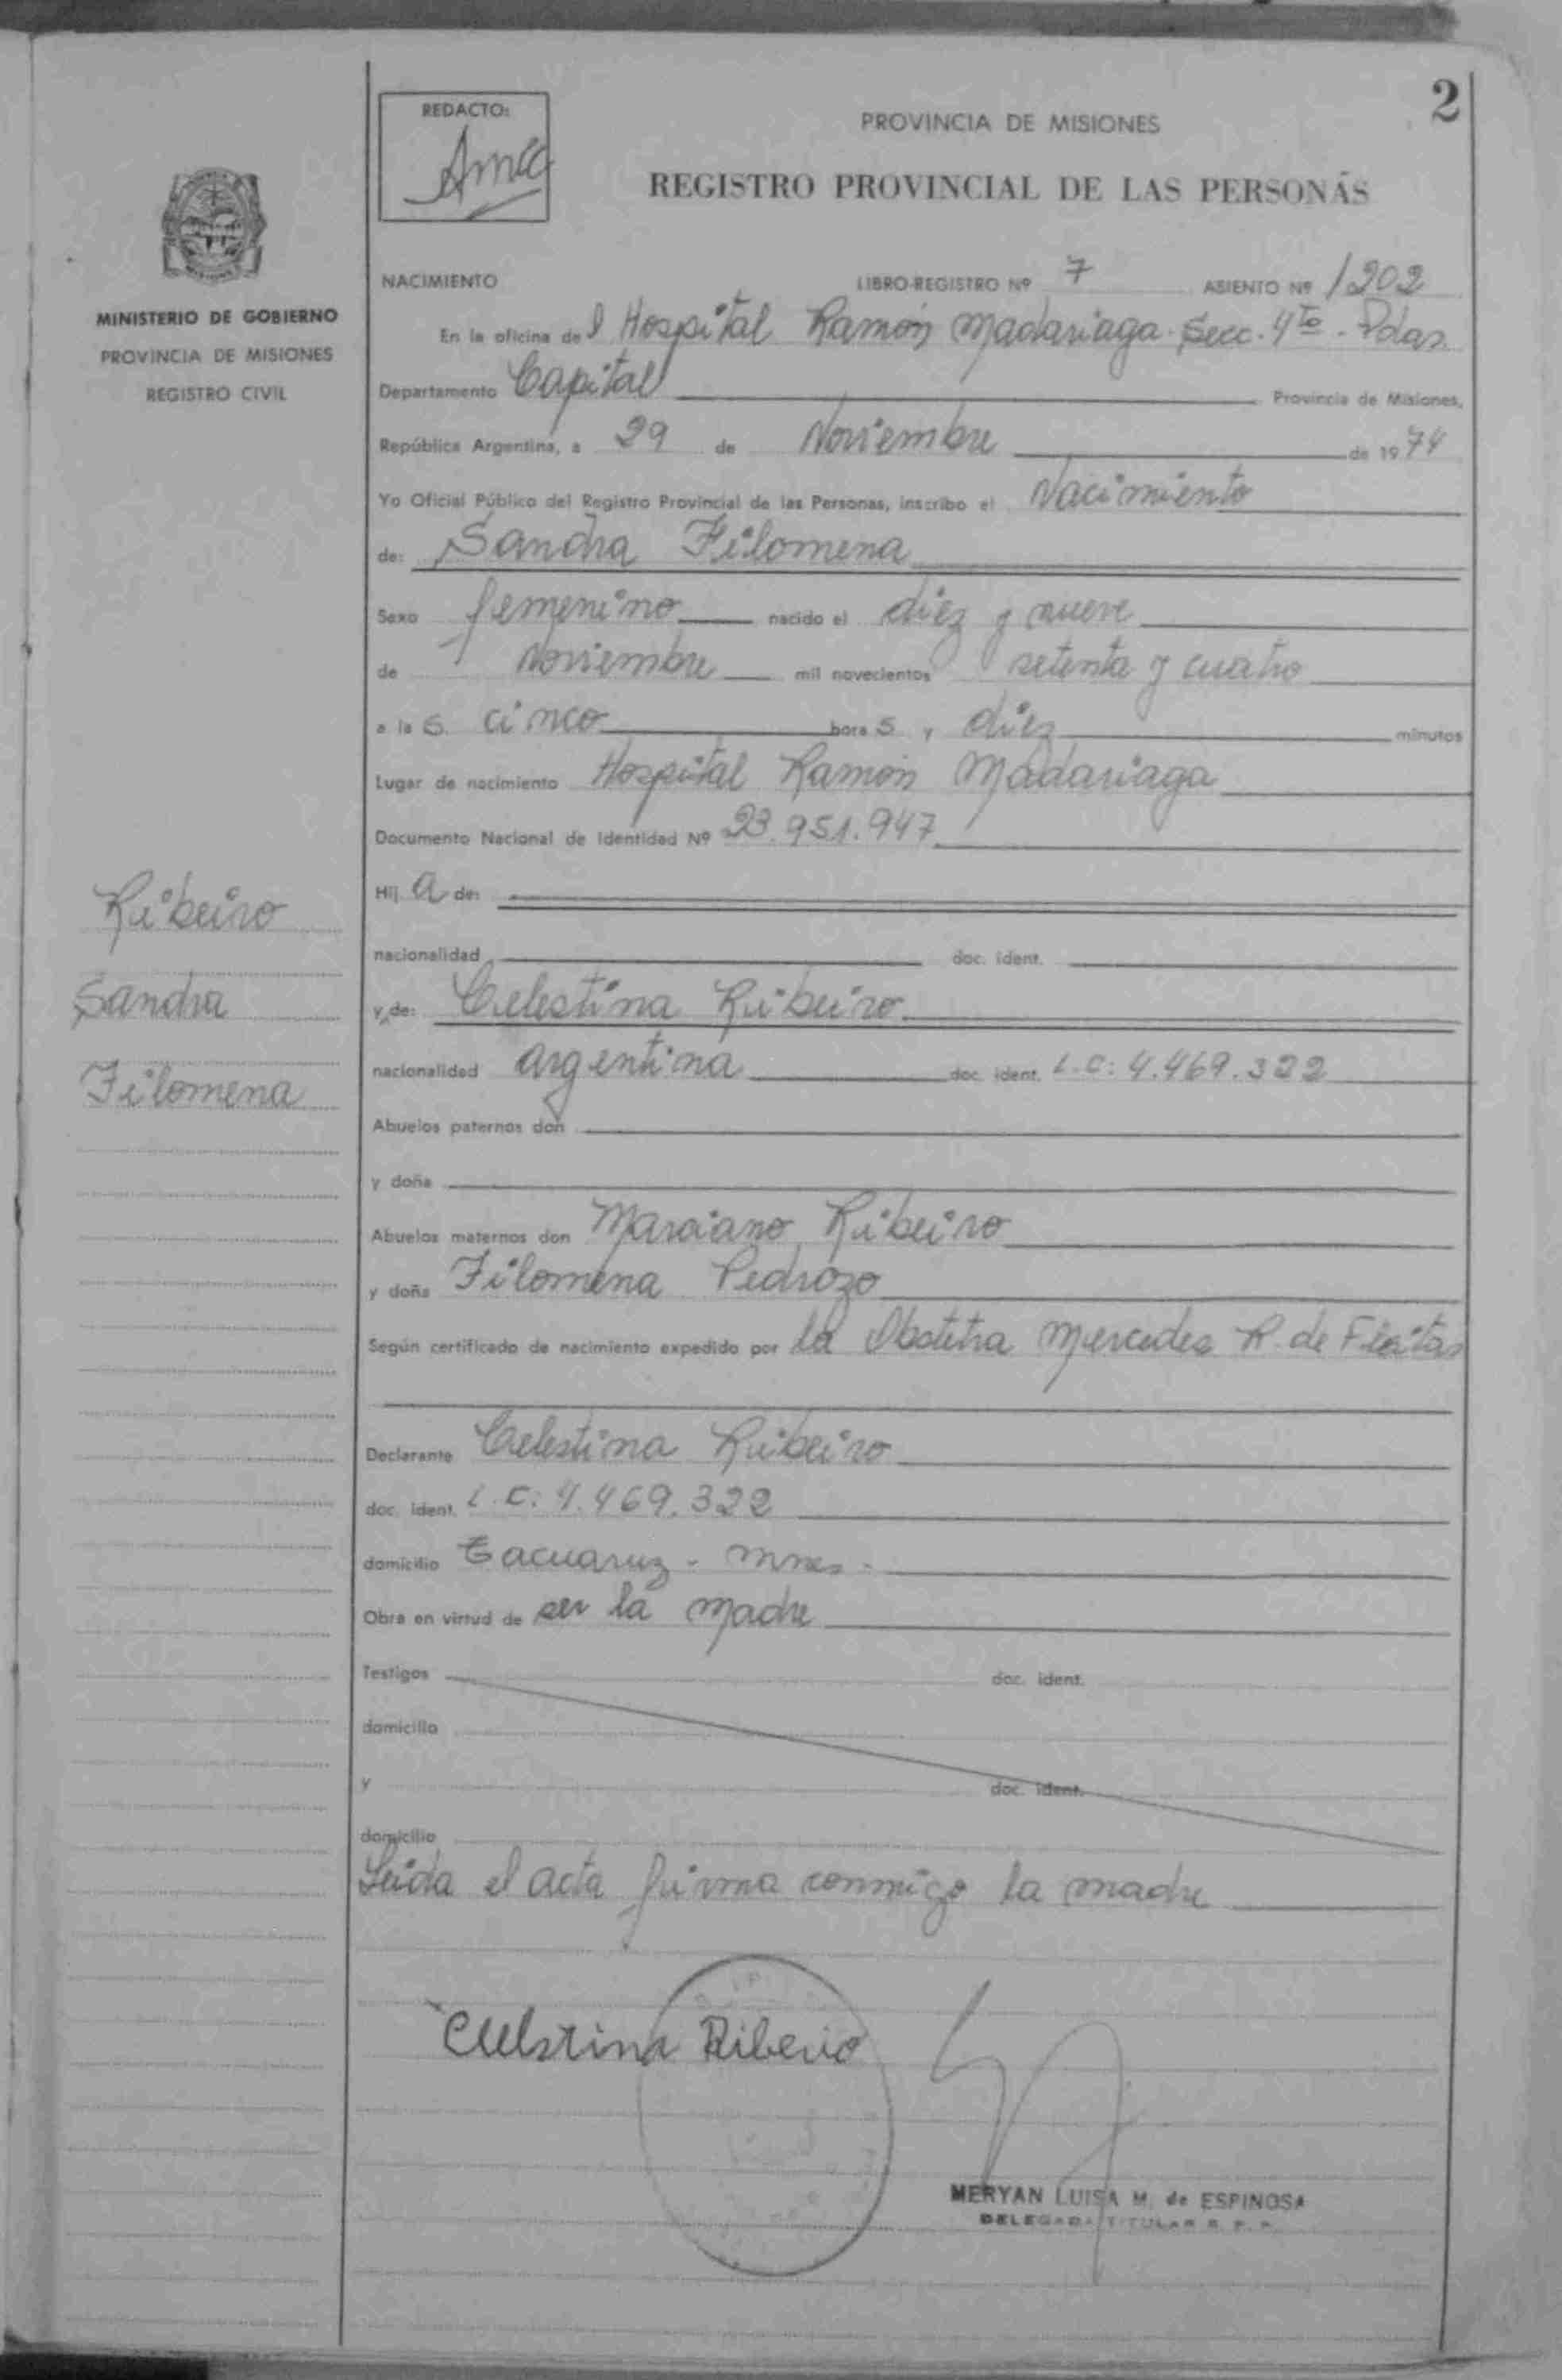 2
REDACTO:
PROVINCIA DE MISIONES
REGISTRO PROVINCIAL DE LAS PERSONAS
MINISTERIO DE GOBIERNO
PROVINCIA DE MISIONES
REGISTRO CIVIL
NACIMIENTO LIBRO-REGISTRO Nº 7 ASIENTO Nº 1202
En la oficina del Hospital Ramón Madariaga. Secc. 4ta. Pdas.
Departamento Capital Provincia de Misiones,
República Argentina, a 29 de Noviembre de 1974
Yo Oficial Público del Registro Provincial de las Personas, inscribo el Nacimiento
de: Sandra Filomena
Sexo femenino nacido el diez y nueve
de Noviembre mil novecientos setenta y cuatro
a las cinco horas y diez minutos
Lugar de nacimiento Hospital Ramón Madariaga
Documento Nacional de Identidad Nº 23.951.947
Hij a de:
nacionalidad doc. ident.
y de: Celestina Ribeiro
nacionalidad argentina doc. ident. L.C: 4.469.322
Ribeiro
Sandra
Filomena
Abuelos paternos don
y doña
Abuelos maternos don Marciano Ribeiro
y doña Filomena Pedrozo
Según certificado de nacimiento expedido por la Obstetra Mercedes R. de Fleitas
Declarante Celestina Ribeiro
doc. ident. L.C: 4.469.322
domicilio Tacuaruz - Mnes.
Obra en virtud de ser la madre
Testigos doc. ident.
domicilio
y doc. ident.
domicilio
Leida el acta firma conmigo la madre
Celestina Ribeiro
MERYAN LUISA M. de ESPINOSA
DELEGADA TITULAR R. P. P.